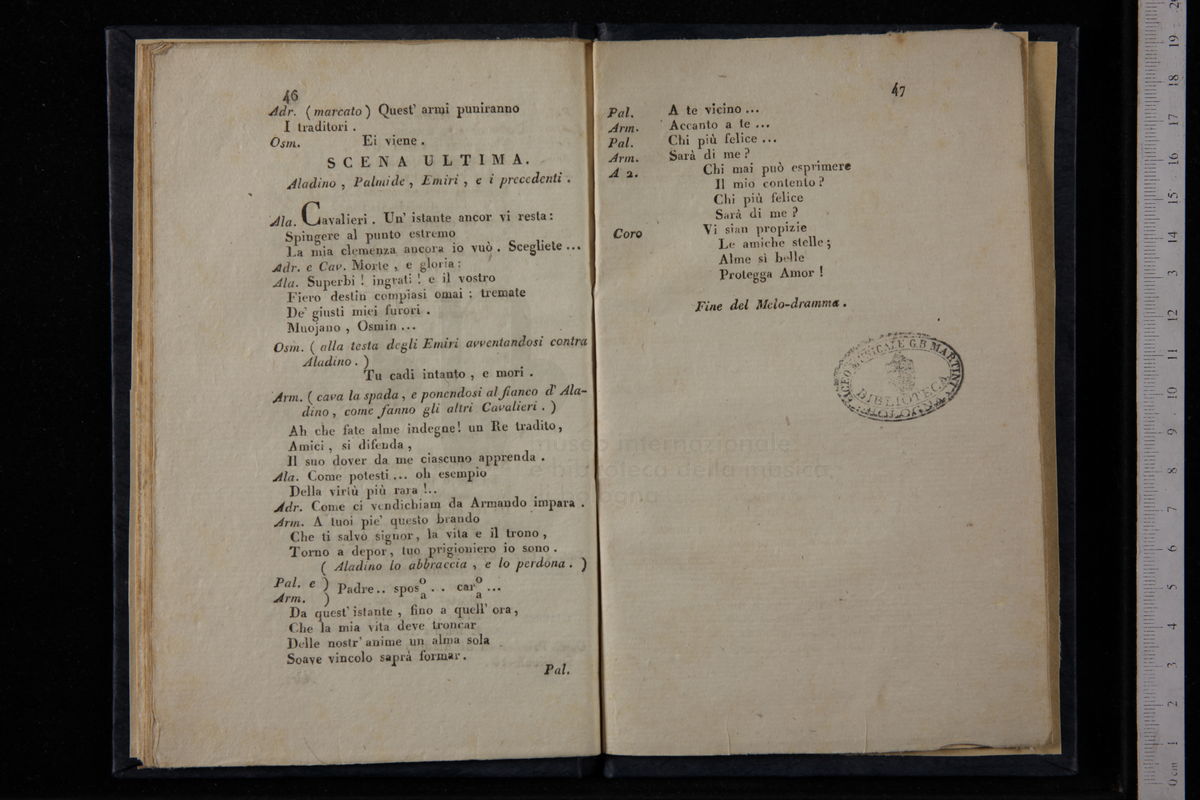 46
Adr. ( marcato ) Quest' armi puniranno
I traditori .
Osm. Ei viene .
SCENA ULTIMA.
Aladino , Palmide , Emiri , e i precedenti .
Ala. Cavalieri . Un' istante ancor vi resta :
Spingere al punto estremo
La mia clemenza ancora io vuò . Scegliete ...
Adr. e Cav. Morte , e gloria :
Ala. Superbi ! ingrati ! e il vostro
Fiero destin compiasi omai : tremate
De' giusti miei furori .
Muojano , Osmin ...
Osm. ( alla testa degli Emiri avventandosi contra
Aladino . )
Tu cadi intanto , e mori .
Arm. ( cava la spada , e ponendosi al fianco d' Ala-
dino , come fanno gli altri Cavalieri . )
Ah che fate alme indegne! un Re tradito,
Amici , si difenda ,
Il suo dover da me ciascuno apprenda .
Ala. Come potesti ... oh esempio
Della virtù più rara !..
Adr. Come ci vendichiam da Armando impara .
Arm. A tuoi pie' questo brando
Che ti salvò signor, la vita e il trono ,
Torno a depor, tuo prigioniero io sono .
( Aladino lo abbraccia , e lo perdona . )
Pal. e ) Padre .. spos o/a . . car o/a ...
Arm. )
Da quest' istante , fino a quell' ora,
Che la mia vita deve troncar
Delle nostr' anime un alma sola
Soave vincolo saprà formar.
Pal.
47
Pal. A te vicino ...
Arm. Accanto a te ...
Pal. Chi più felice ...
Arm. Sarà di me ?
A 2. Chi mai può esprimere
Il mio contento ?
Chi più felice
Sarà di me ?
Coro Vi sian propizie
Le amiche stelle ;
Alme sì belle
Protegga Amor !
Fine del Melo-dramma .
LICEO MUSICALE G.B. MARTINI
BIBLIOTECA
BOLOGNA
museo internazionale
e biblioteca della musica
bologna
0 cm 1 2 3 4 5 6 7 8 9 10 11 12 13 14 15 16 17 18 19 20